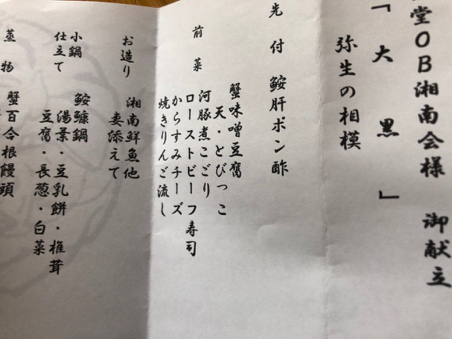 堂OB湘南会様 御献立
「大黒」
弥生の相模
先付 鮟肝ポン酢
蟹味噌豆腐
天・とびっこ
前菜 河豚煮こごり
ローストビーフ寿司
からすみチーズ
焼きりんご流し
お造り 湘南鮮魚他
妻添えて
小鍋 鮟鱇鍋
仕立て 湯葉・豆乳餅・椎茸
豆腐・長葱・白菜
蒸物 蟹百合根饅頭